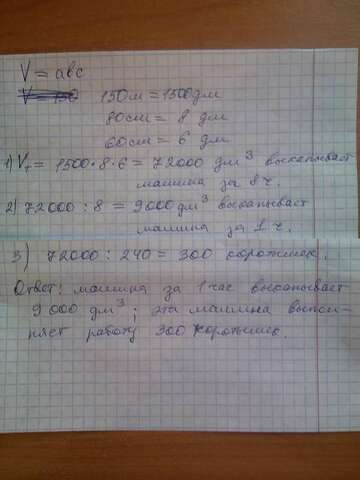 V = abc
V = 150 150м = 1500дм
80см = 8 дм
60см = 6 дм
1) V₁ = 1500•8•6 = 72000 дм³ выкапывает
машина за 8 ч.
2) 72000 : 8 = 9000 дм³ выкапывает
машина за 1 ч.
3) 72000 : 240 = 300 коротышек.
Ответ: машина за 1 час выкапывает
9 000 дм³; эта машина выпол-
няет работу 300 коротышек.